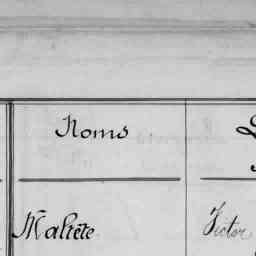 Noms
Maltête Victor